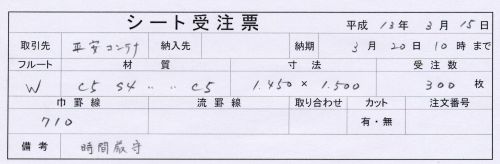 シート受注票 平成 13年 3月 15日
取引先 平安コンテナ 納入先 納期 3月 20日 10時まで
フルート 材質 寸法 受注数
W C5 S4 〃 〃 C5 1.450 × 1.500 300 枚
巾罫線 流罫線 取り合わせ カット 注文番号
710 有・無
備考 時間厳守